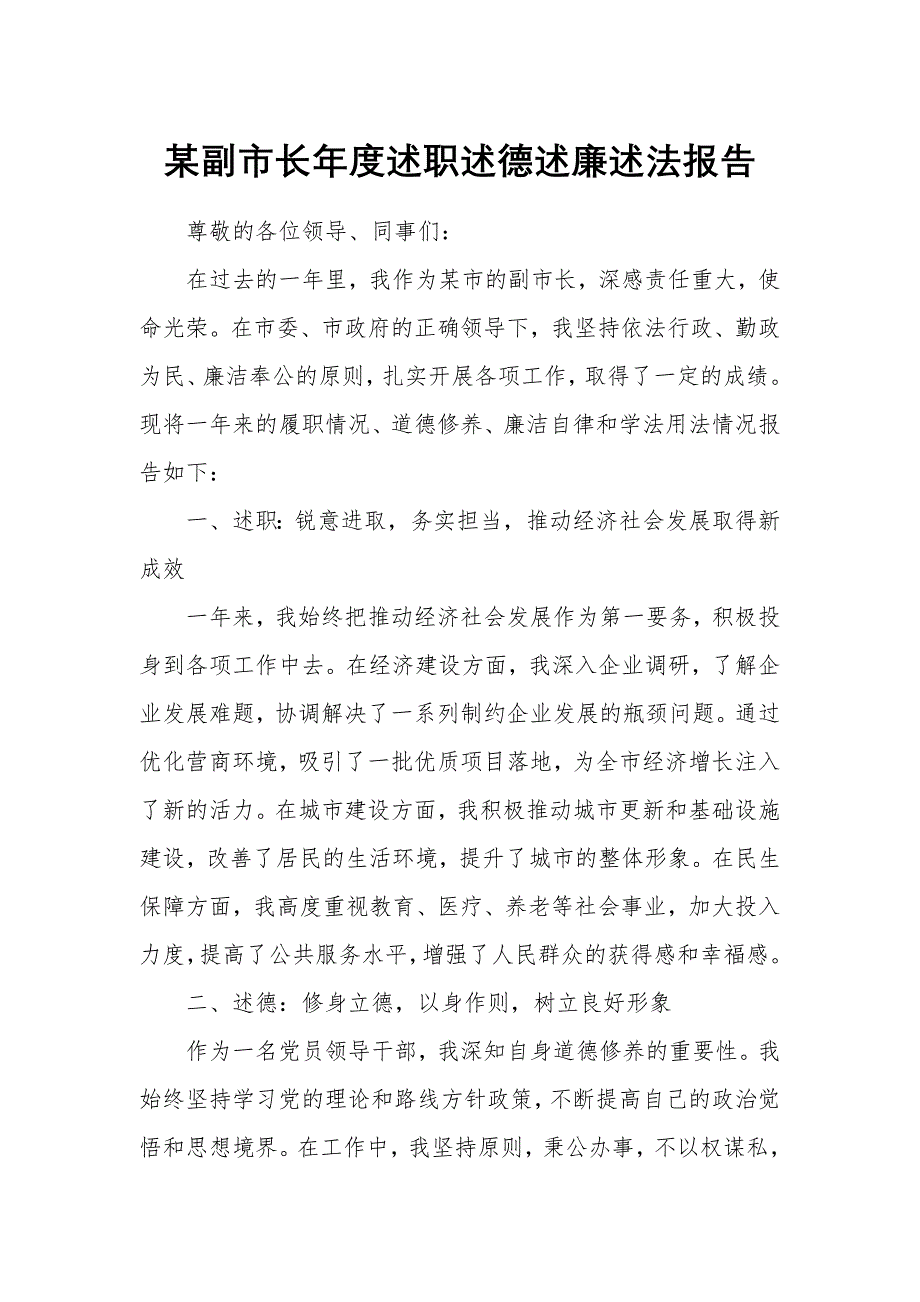 某副市长年度述职述德述廉述法报告
尊敬的各位领导、同事们：
在过去的一年里，我作为某市的副市长，深感责任重大，使
命光荣。在市委、市政府的正确领导下，我坚持依法行政、勤政
为民、廉洁奉公的原则，扎实开展各项工作，取得了一定的成绩。
现将一年来的履职情况、道德修养、廉洁自律和学法用法情况报
告如下：
一、述职：锐意进取，务实担当，推动经济社会发展取得新
成效
一年来，我始终把推动经济社会发展作为第一要务，积极投
身到各项工作中去。在经济建设方面，我深入企业调研，了解企
业发展难题，协调解决了一系列制约企业发展的瓶颈问题。通过
优化营商环境，吸引了一批优质项目落地，为全市经济增长注入
了新的活力。在城市建设方面，我积极推动城市更新和基础设施
建设，改善了居民的生活环境，提升了城市的整体形象。在民生
保障方面，我高度重视教育、医疗、养老等社会事业，加大投入
力度，提高了公共服务水平，增强了人民群众的获得感和幸福感。
二、述德：修身立德，以身作则，树立良好形象
作为一名党员领导干部，我深知自身道德修养的重要性。我
始终坚持学习党的理论和路线方针政策，不断提高自己的政治觉
悟和思想境界。在工作中，我坚持原则，秉公办事，不以权谋私，